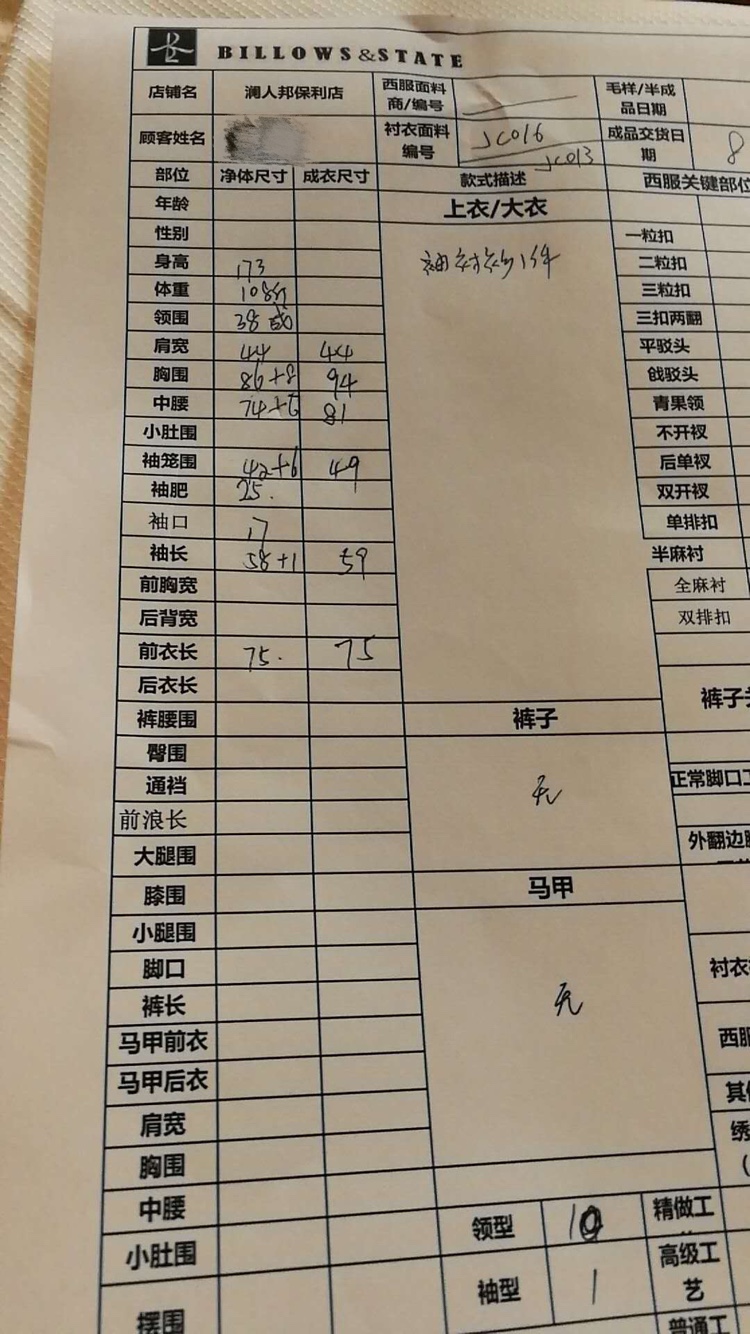 BILLOWS&STATE
店铺名 澜人邦保利店 西服面料商/编号 毛样/半成品日期
顾客姓名 衬衣面料编号 JC016 JC013 成品交货日期 8
部位 净体尺寸 成衣尺寸 款式描述 西服关键部位
年龄 上衣/大衣
性别 一粒扣
身高 173 二粒扣
体重 108斤 三粒扣
领围 38 三扣两翻
肩宽 44 44 平驳头
胸围 86+8 94 戗驳头
中腰 74+6 81 青果领
小肚围 不开衩
袖笼围 42+6 49 后单衩
袖肥 25. 双开衩
袖口 17 单排扣
袖长 58+1 59 半麻衬
前胸宽 全麻衬
后背宽 双排扣
前衣长 75. 75
后衣长
裤腰围 裤子
臀围
通裆 无 正常脚口工
前浪长
大腿围 外翻边脚
膝围 马甲
小腿围
脚口 衬衣
裤长 无
马甲前衣 西服
马甲后衣 其他
肩宽 绣
胸围
中腰 领型 10 精做工
小肚围 袖型 1 高级工艺
摆围 普通工